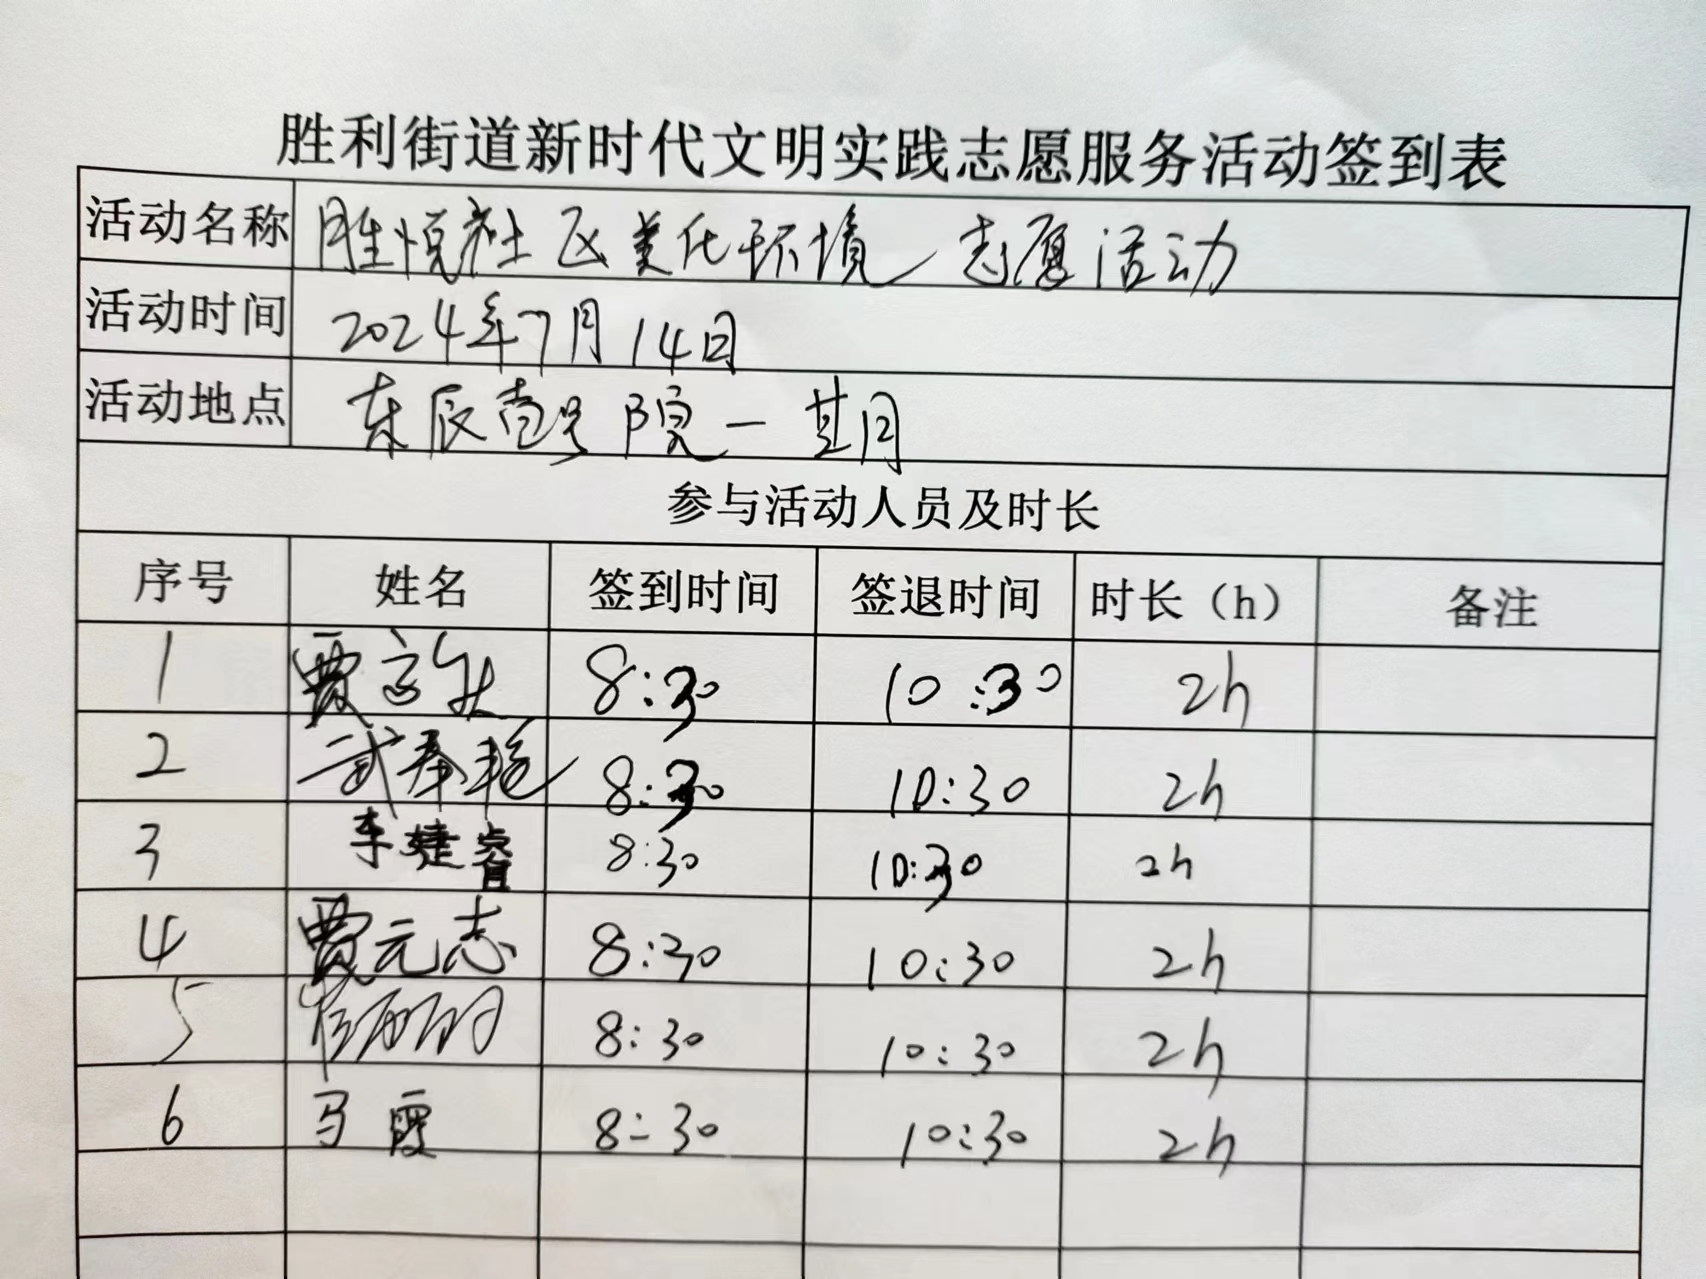 胜利街道新时代文明实践志愿服务活动签到表
活动名称 胜悦社区美化环境志愿活动
活动时间 2024年7月14日
活动地点 东辰壹号院一期
参与活动人员及时长
序号 姓名 签到时间 签退时间 时长（h） 备注
1 贾 8:30 10:30 2h
2 武春艳 8:30 10:30 2h
3 李婕睿 8:30 10:30 2h
4 贾元志 8:30 10:30 2h
5 8:30 10:30 2h
6 马霞 8:30 10:30 2h